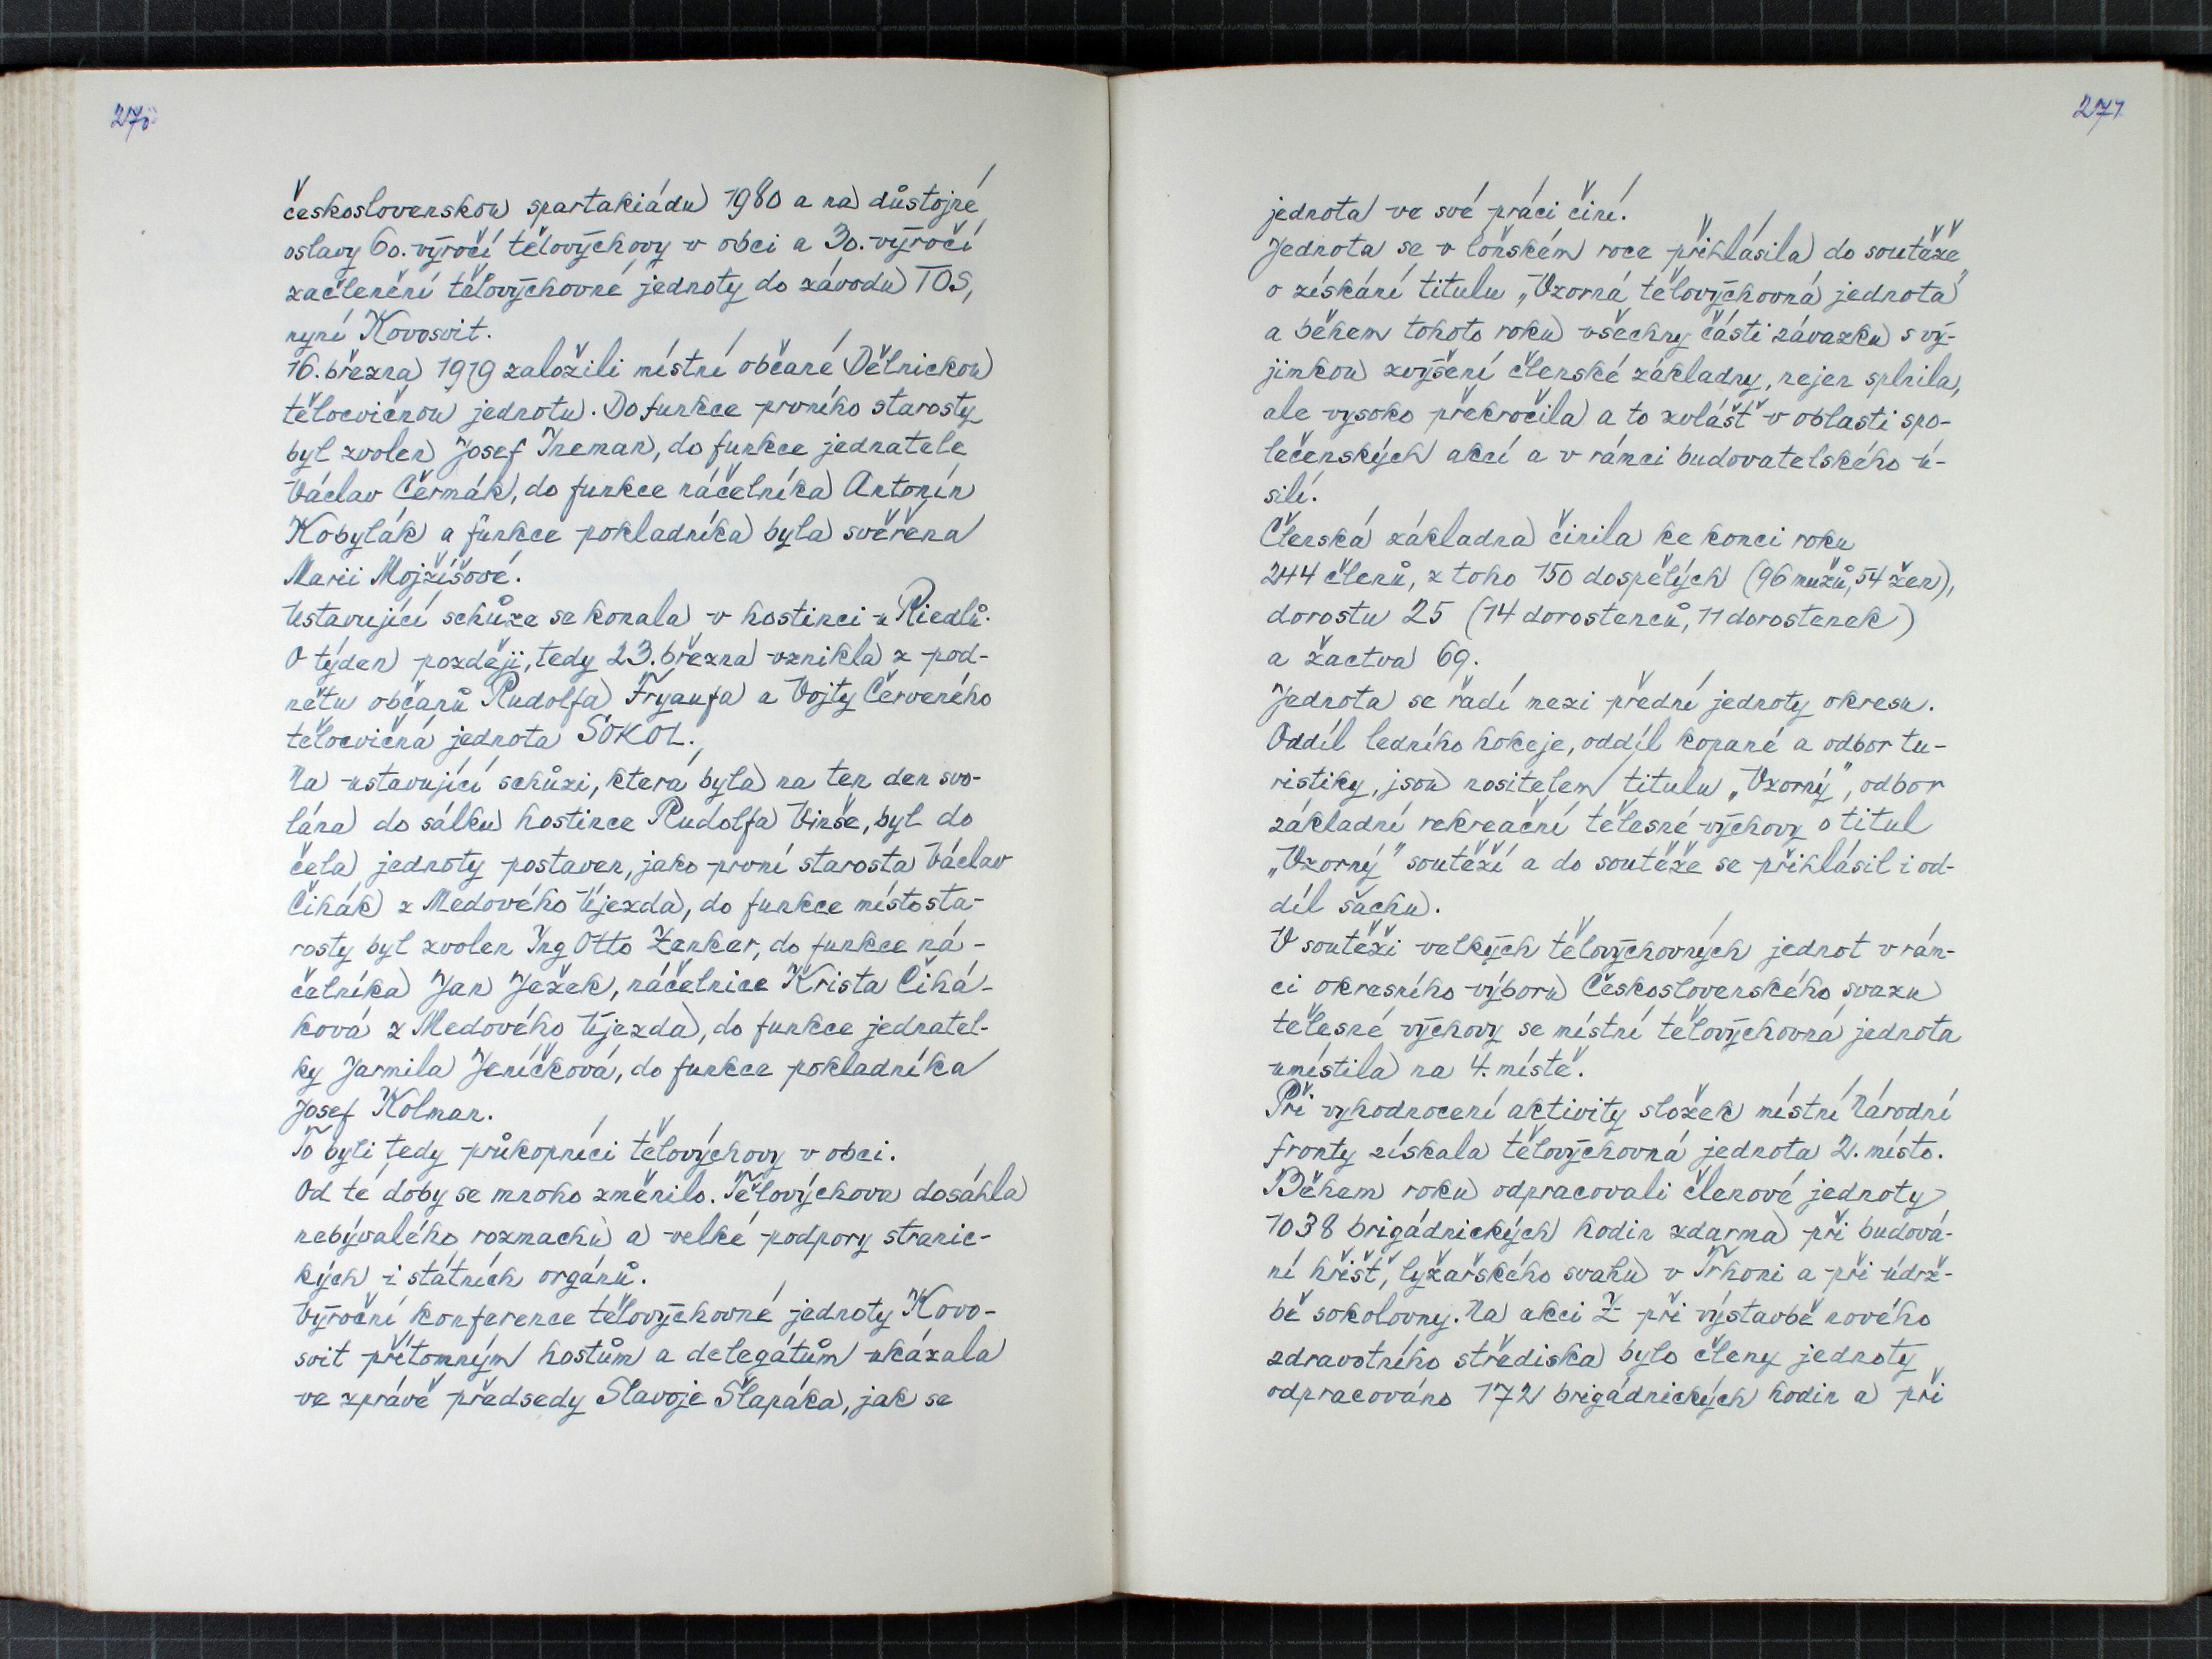 270
československou spartakiádu 1980 a na důstojné
oslavy 60. výročí tělovýchovy v obci a 30. výročí
začlenění tělovýchovné jednoty do závodu TOS,
nyní Kovosvit.
16. března 1919 založili místní občané Dělnickou
tělocvičnou jednotu. Do funkce prvního starosty
byl zvolen Josef Ineman, do funkce jednatele
Václav Čermák, do funkce náčelníka Antonín
Kobylák a funkce pokladníka byla svěřena
Marii Mojžíšové.
Ustavující schůze se konala v hostinci u Riedlů.
O týden později, tedy 23. března vznikla z pod-
nětu občanů Rudolfa Fryaufa a Vojty Červeného
tělocvičná jednota SOKOL.
Na ustavující schůzi, která byla na ten den svo-
lána do sálku hostince Rudolfa Vinše, byl do
čela jednoty postaven, jako první starosta Václav
Čihák z Medového Újezda, do funkce místosta-
rosty byl zvolen Ing Otto Zenker, do funkce ná-
čelníka Jan Ježek, náčelnice Krista Čihá-
ková z Medového Újezda, do funkce jednatel-
ky Jarmila Jeníčková, do funkce pokladníka
Josef Kolman.
To byli tedy průkopníci tělovýchovy v obci.
Od té doby se mnoho změnilo. Tělovýchova dosáhla
nebývalého rozmachu a velké podpory stranic-
kých i státních orgánů.
Výroční konference tělovýchovné jednoty Kovo-
svit přítomným hostům a delegátům ukázala
ve zprávě předsedy Slavoje Šlapáka, jak se
271
jednota ve své práci činí.
Jednota se v loňském roce přihlásila do soutěže
o získání titulu „Vzorná tělovýchovná jednota"
a během tohoto roku všechny části závazku s vý-
jimkou zvýšení členské základny, nejen splnila,
ale vysoko překročila a to zvlášť v oblasti spo-
lečenských akcí a v rámci budovatelského ú-
silí.
Členská základna činila ke konci roku
244 členů, z toho 150 dospělých (96 mužů, 54 žen),
dorostu 25 (14 dorostenců, 11 dorostenek)
a žactva 69.
Jednota se řadí mezi přední jednoty okresu.
Oddíl ledního hokeje, oddíl kopané a odbor tu-
ristiky, jsou nositelem titulu „Vzorný", odbor
základní rekreační tělesné výchovy o titul
„Vzorný" soutěží a do soutěže se přihlásil i od-
díl šachu.
V soutěži velkých tělovýchovných jednot v rám-
ci okresního výboru Československého svazu
tělesné výchovy se místní tělovýchovná jednota
umístila na 4. místě.
Při vyhodnocení aktivity složek místní Národní
fronty získala tělovýchovná jednota 2. místo.
Během roku odpracovali členové jednoty
1038 brigádnických hodin zdarma při budová-
ní hřišť, lyžařského svahu v Trhoni a při údrž-
bě sokolovny. Na akci Z při výstavbě nového
zdravotního střediska bylo členy jednoty
odpracováno 172 brigádnických hodin a při